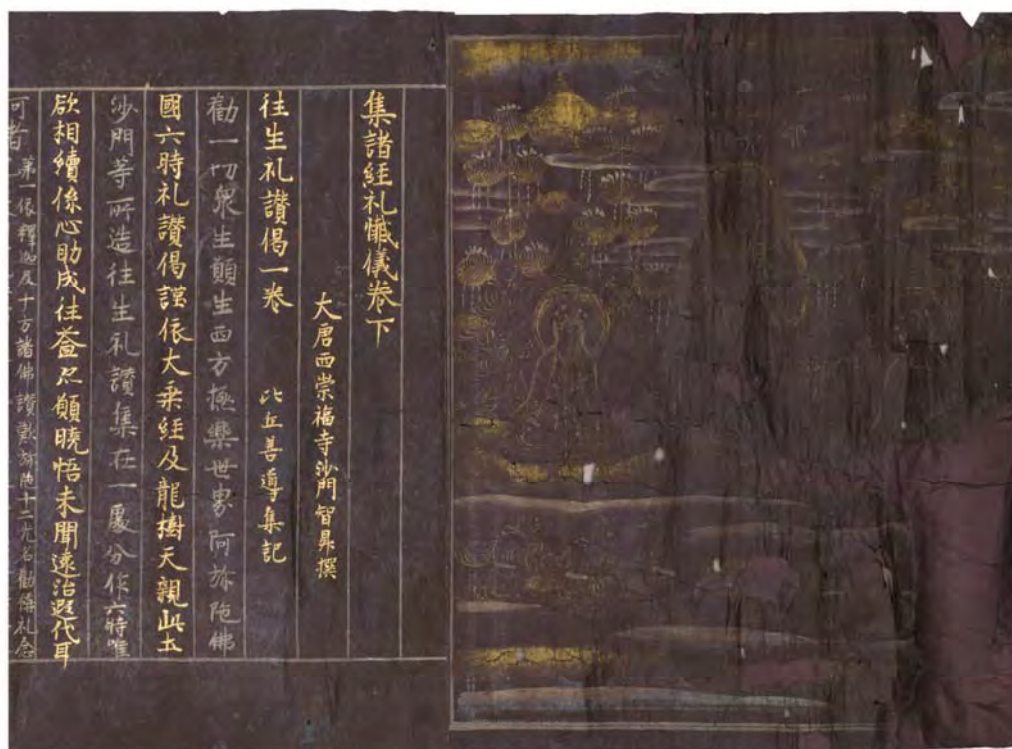 集諸經礼懺儀卷下
大唐西崇福寺沙門智昇撰
往生礼讃偈一卷 比丘善導集記
勸一切衆生願生西方極樂世界阿弥陀佛
國六時礼讃偈謹依大乘経及龍樹天親此土
沙門等所造往生礼讃集在一處分作六時唯
欲相續係心助成往益忽願曉悟未聞遠沾遐代耳
何者 第一依釋迦及十方諸佛讃歎弥陀十二光名勸稱礼念